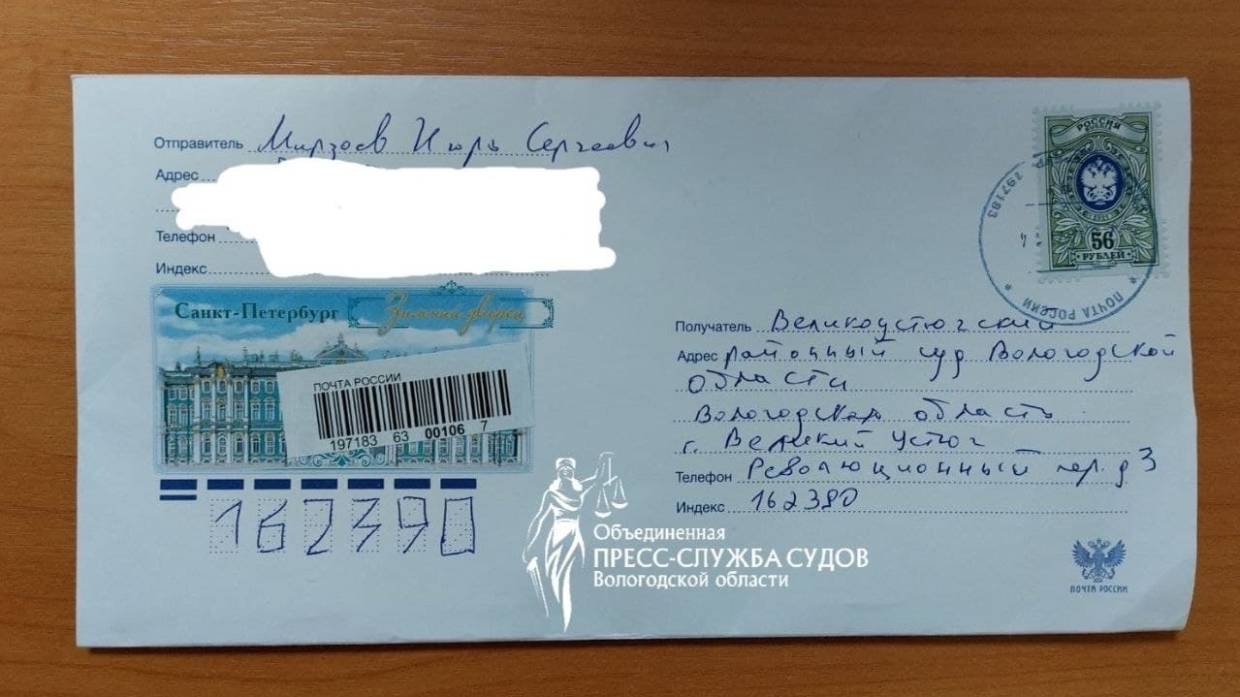 Отправитель Мирзоев Игорь Сергеевич
Адрес
Телефон
Индекс
Санкт-Петербург Зимний дворец
ПОЧТА РОССИИ
197183 63 00106 7
162390
РОССИЯ
56
РУБЛЕЙ
197183
ПОЧТА РОССИИ
Получатель Великоустюгский
Адрес районный суд Вологодской
области
Вологодская область
г. Великий Устюг
Телефон Революционный пер. д 3
Индекс 162390
Объединенная
ПРЕСС-СЛУЖБА СУДОВ
Вологодской области
ПОЧТА РОССИИ